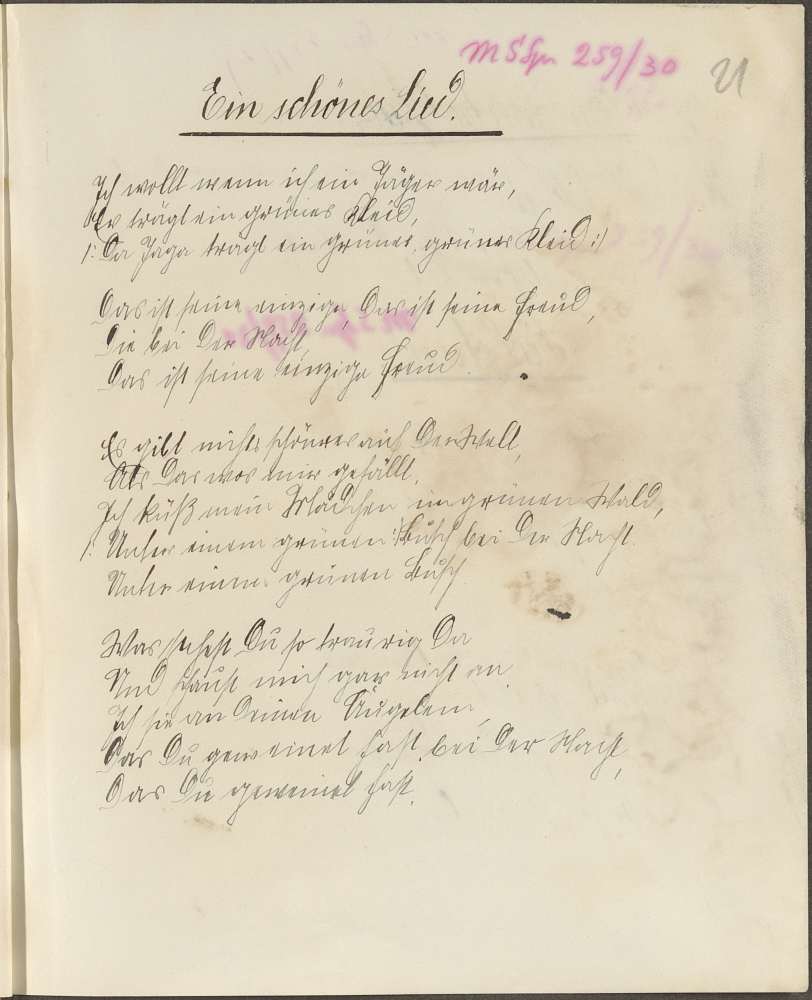 MSSgn 259/30
21
Ein schönes Lied.
Ich wollt wenn ich ein Jäger wär,
Er trägt ein grünes Kleid,
/: Da Jaga tragt ein grünes, grünes Kleid :/
Das ist seine einzige, Das ist seine Freud,
Die bei Der Nacht,
Das ist seine einzige Freud.
Es gibt nichts schönres auf Der Welt,
Als Das was mir gefällt.
Ich küß mein Mädchen im grünen Wald,
/: Unter einem grünen :/ Busch bei Der Nacht.
Unter einem grünen Busch.
Was stehst Du so traurig Da
Und schaust mich gar nicht an
Ich sie an Deinen Äugelein
Das Du geweinet hast, bei Der Nacht,
Das Du geweinet hast.